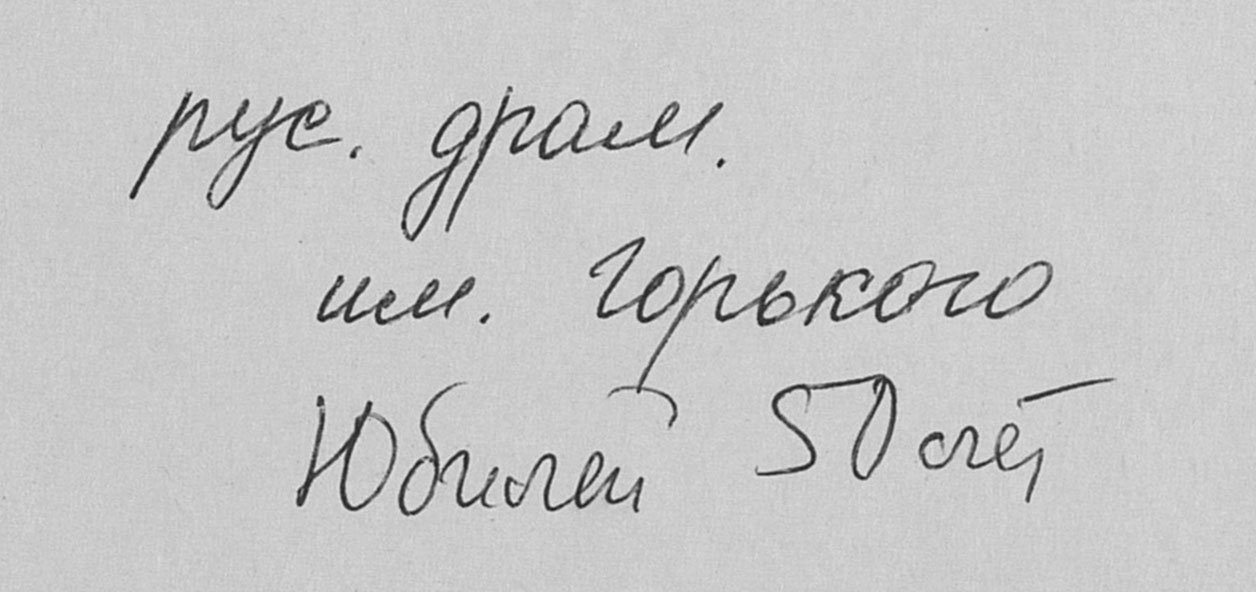 рус. драм.
им. Горького
Юбилей 50 лет